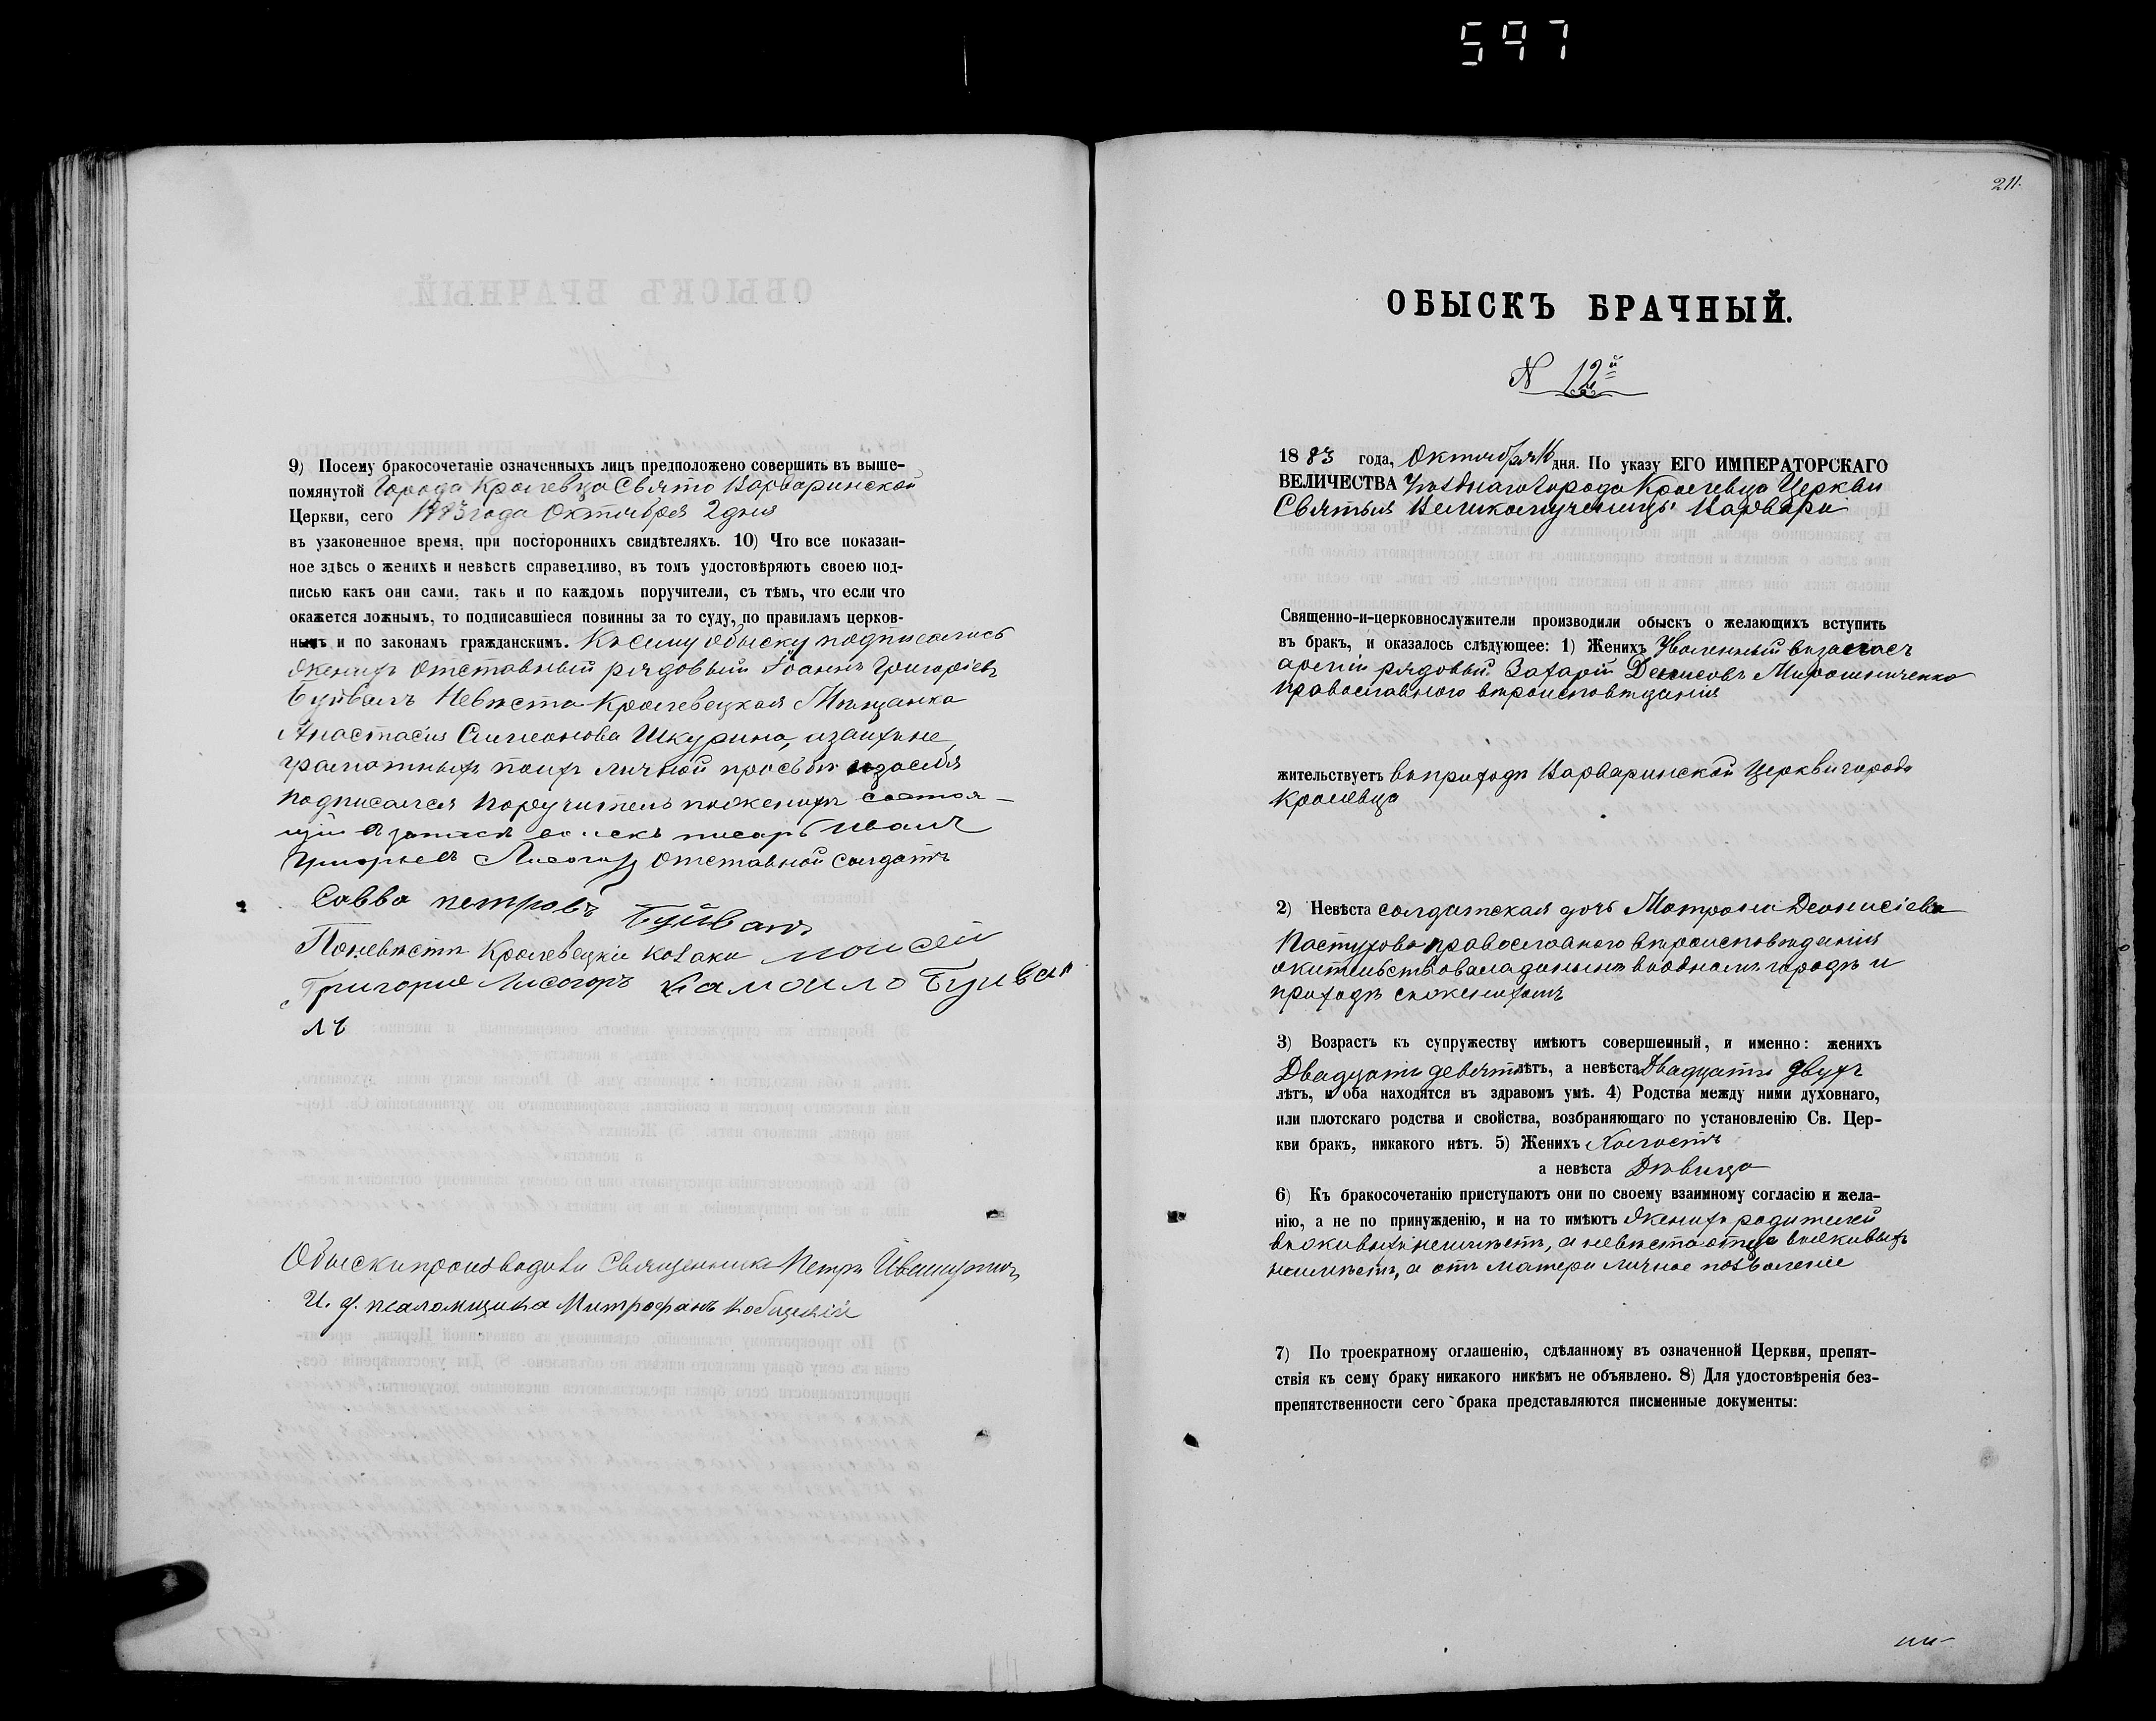 597
9) Посему бракосочетаніе означенныхъ лицъ предположено совершить въ выше-
помянутой Города Кролевца Свято Варваринской
Церкви, сего 1883 года Октября 2 дня
въ узаконенное время, при постороннихъ свидѣтеляхъ. 10) Что все показан-
ное здѣсь о женихѣ и невѣстѣ справедливо, въ томъ удостовѣряютъ своею под-
писью какъ они сами, такъ и по каждомъ поручители, съ тѣмъ, что если что
окажется ложнымъ, то подписавшіеся повинны за то суду, по правиламъ церков-
нымъ и по законамъ гражданскимъ. Къ сему обыску подписались
Женихъ отставный рядовый Іоаннъ Григоріевъ
Буйвалъ Невѣста Кролевецкая Мѣщанка
Анастасія Симеонова Шкурина, а за ихъ не
грамотныхъ по ихъ личной просьбѣ и за себя
подписался Поручитель по женихѣ состоя-
щій в запасѣ писарь Иванъ
Григорьевъ Лисогоръ отставной солдатъ
Савва петровъ Буйвалъ
По невѣстѣ Кролевецкіе козаки моисей
Григорие Лисогоръ Самоило Буйва
лъ
Обыскъ производили Священникъ Петръ
И. д. псаломщика Митрофанъ
211.
ОБЫСКЪ БРАЧНЫЙ.
N 12й
1883 года, Октября 16 дня. По указу ЕГО ИМПЕРАТОРСКАГО
ВЕЛИЧЕСТВА Уѣзднаго города Кролевца Церкви
Святыя Великомученицы Варвары
Священно-и-церковнослужители производили обыскъ о желающихъ вступить
въ бракъ, и оказалось слѣдующее: 1) Женихъ Уволенный въ запасъ
арміи рядовый Захарій Денисовъ Мирошниченко
православного вѣроисповѣданія
жительствуетъ въ приходѣ Варваринской церкви города
Кролевца
2) Невѣста солдатская дочь Матрона Деонисіева
Пастухова православного вѣроисповѣданія
жительствовала донынѣ въ одномъ городѣ и
приходѣ съ женихомъ
3) Возрастъ къ супружеству имѣютъ совершенный, и именно: женихъ
Двадцати девяти лѣтъ, а невѣста Двадцати двухъ
лѣтъ, и оба находятся въ здравомъ умѣ. 4) Родства между ними духовнаго,
или плотскаго родства и свойства, возбраняющаго по установленію Св. Цер-
кви бракъ, никакого нѣтъ. 5) Женихъ Холостъ
а невѣста Дѣвица
6) Къ бракосочетанію приступаютъ они по своему взаимному согласію и жела-
нію, а не по принужденію, и на то имѣютъ Женихъ родителей
въ живыхъ неимѣетъ, а невѣста отца в живыхъ
неимѣетъ, а отъ матери личное позволеніе
7) По троекратному оглашенію, сдѣланному въ означенной Церкви, препят-
ствія къ сему браку никакого никѣмъ не объявлено. 8) Для удостовѣренія без-
препятственности сего брака представляются писменные документы: